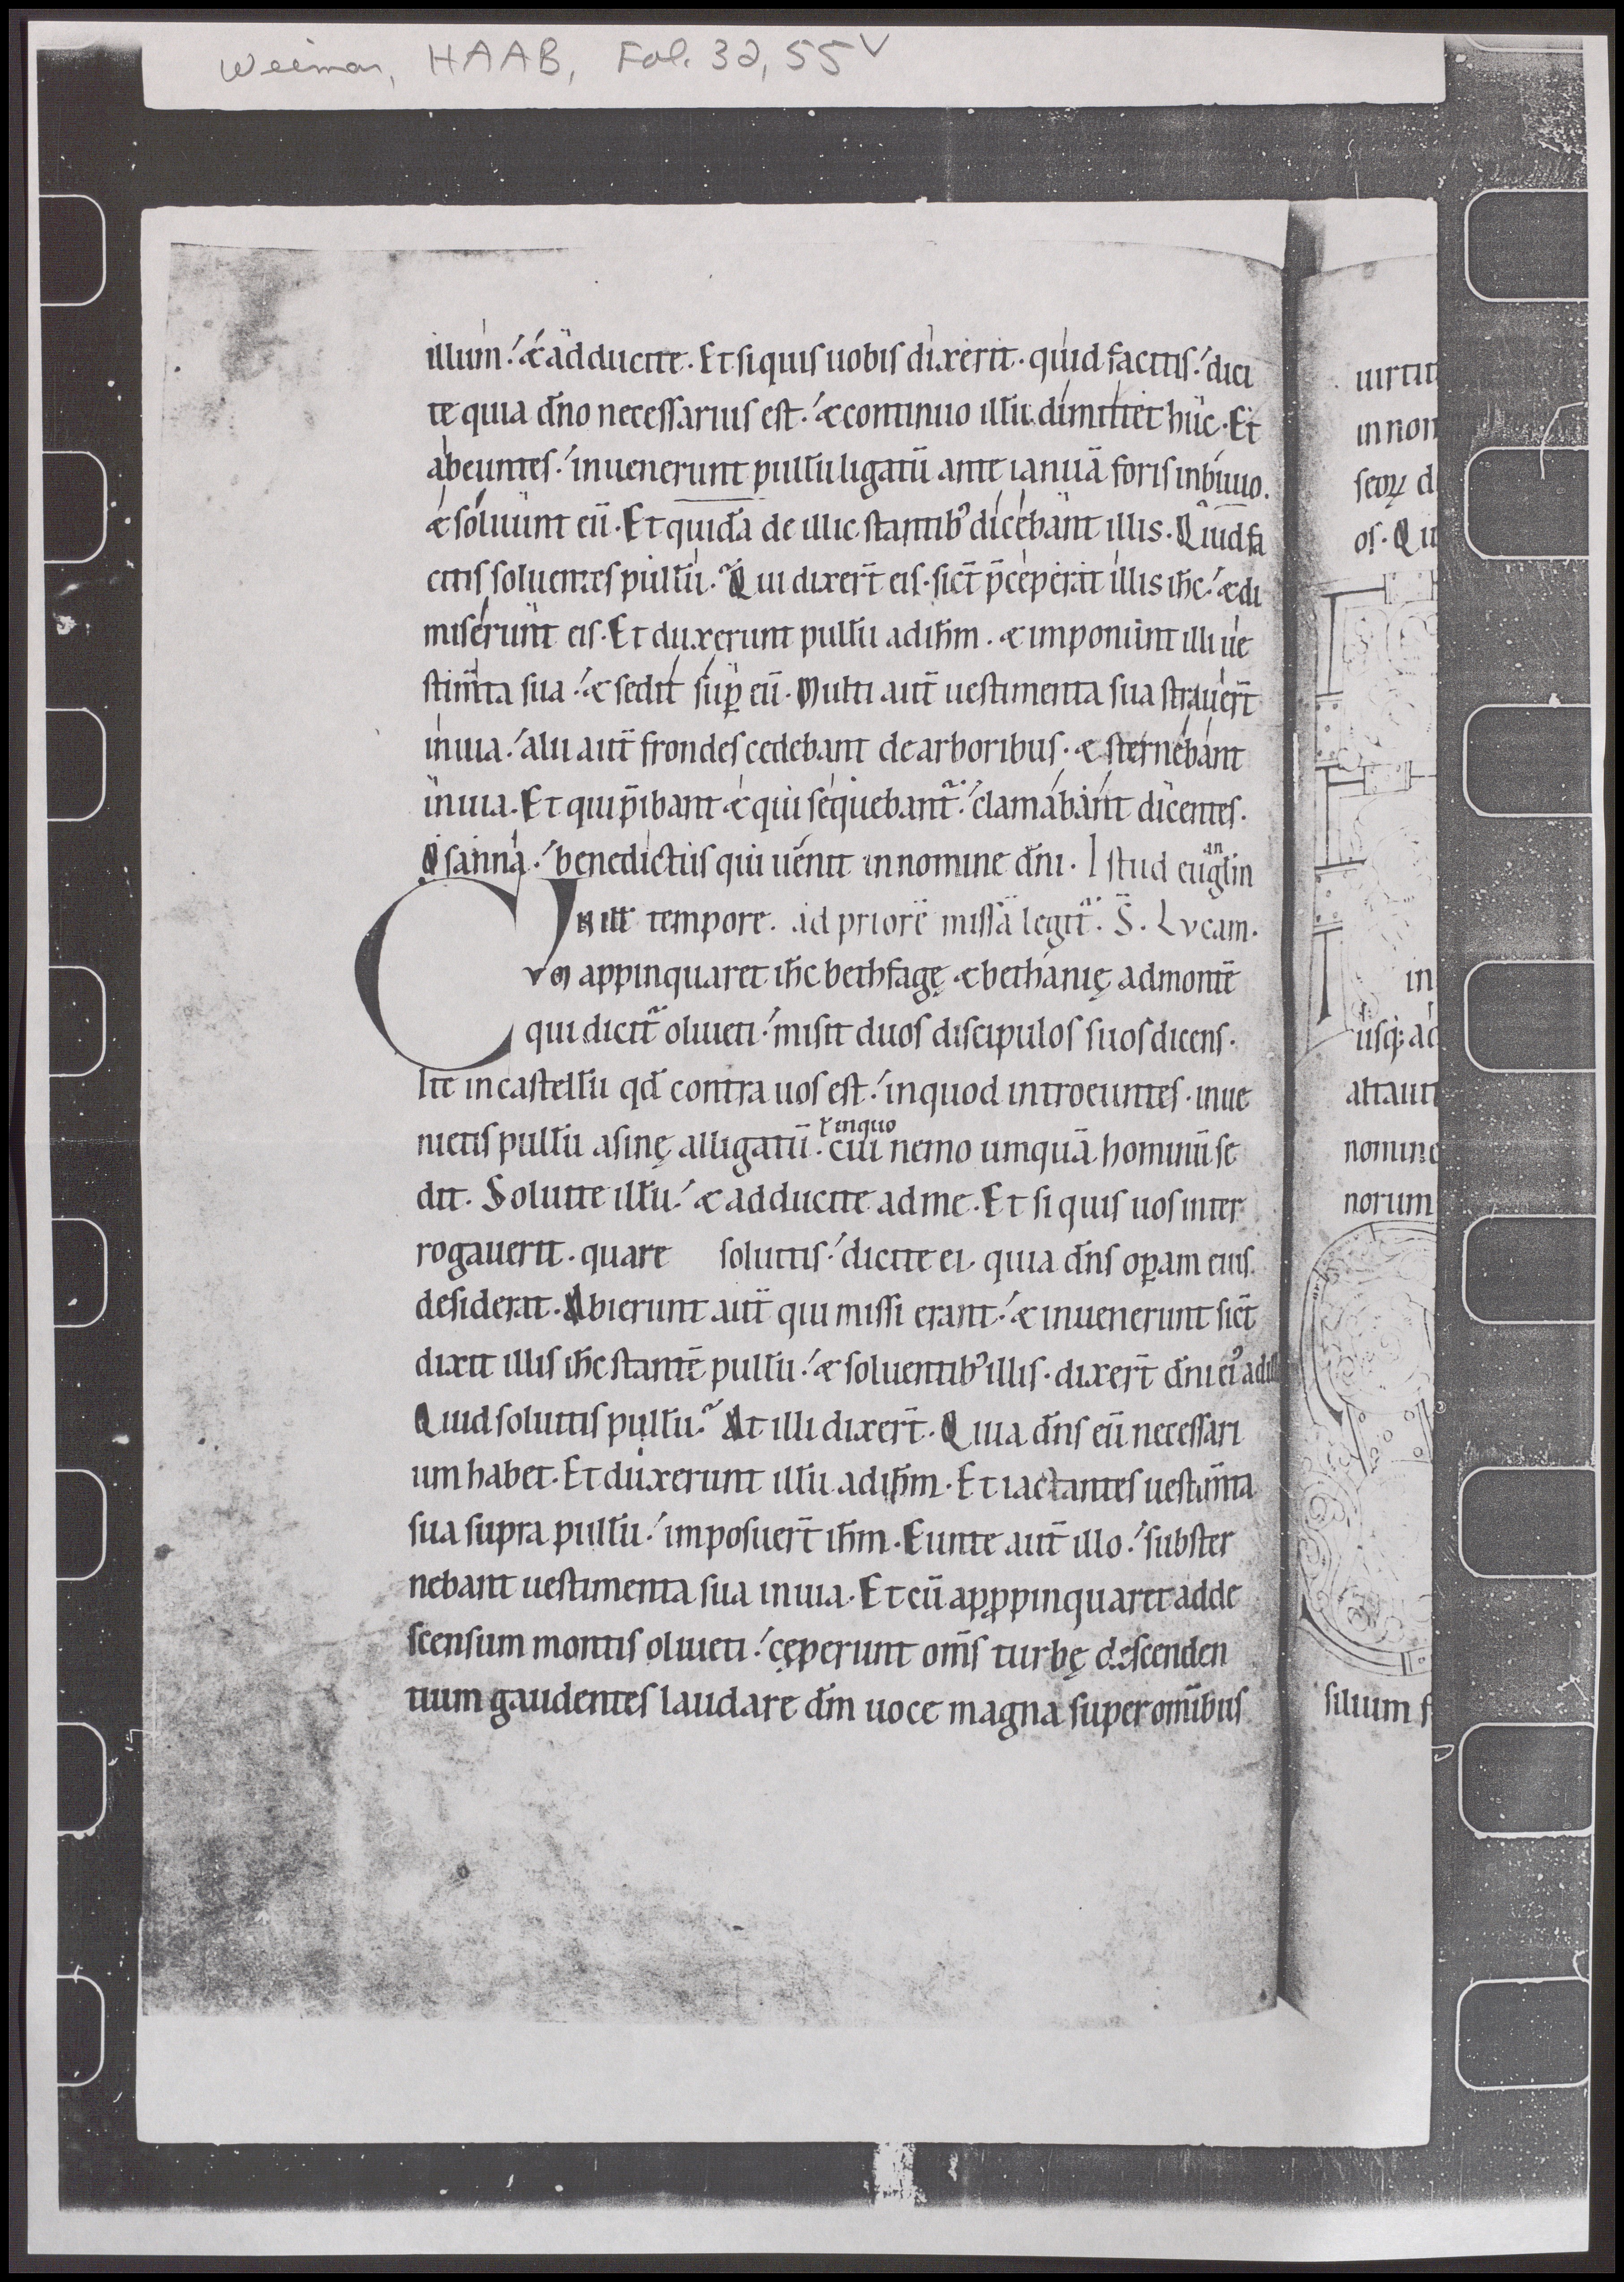 Weimar, HAAB, Fol. 32, 55v
illum · & adducite · Et si quis uobis dixerit · quid facitis · dici
te quia dn̄o necessarius est · & continuo illū dimittet huc · Et
abeuntes · inuenerunt pullū ligatū ante ianuā foris inbiuio ·
& soluunt eū · Et quidā de illic stantib; dicebant illis · Quid fa
citis soluentes pullū · Qui dixer̄t eis · sic̄t p̄ceperat illis ih̄c · & di
miserunt eis · Et duxerunt pullū ad ih̄m · & imponunt illi ue
stim̄ta sua · & sedit sup̱ eū · Multi aut̄ uestimenta sua strauer̄t
inuia · alii aut̄ frondes cedebant de arboribus · & sternebant
inuia · Et qui p̄ibant & qui sequebant̄ · clamabant dicentes ·
Osanna · benedictus qui uenit in nomine dn̄i · Istud euanglin
In ill̄ tempore · ad priorē missā legit̄ · S̄ · Lvcam ·
Cvm appinquaret ih̄c bethfagę & bethanię ad montē
qui dicit̄ oliueti · misit duos discipulos suos dicens ·
Ite in castellū qd̄ contra uos est · in quod introeuntes · inue
nietis pullū asinę alligatū · cui nemo umquā hominū se
ł inquo
dit · Soluite illū · & adducite ad me · Et si quis uos inter
rogauerit · quare soluitis · dicite ei · quia dn̄s op̱am eius
desiderat · Abierunt aut̄ qui missi erant · & inuenerunt sic̄t
dixit illis ih̄c stantē pullū · & soluentib; illis · dixer̄t dn̄i ei; ad ill
Quid soluitis pullū · At illi dixer̄t · Quia dn̄s eū necessari
um habet · Et duxerunt illū ad ih̄m · Et iactantes uestim̄ta
sua supra pullū · imposuer̄t ih̄m · Eunte aut̄ illo · subster
nebant uestimenta sua in uia · Et cū apppinquaret ad de
scensum montis oliueti · cęperunt om̄s turbę descenden
tium gaudentes laudare dm̄ uoce magna super om̄ibus
uirtut
in non
seoꝝ d
os · Qu
in
usq; ad
altaui
nomine
norum
filium f